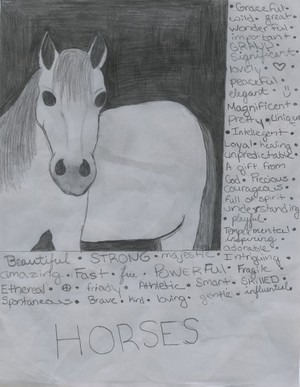 • Graceful •
wild • great •
wonderful •
important •
GRAND •
Significant
lovely • ♡
peaceful
elegant • ü
Magnificent •
Pretty • Unique
• Intelegent •
Loyal • loving •
unpredictable •
A gift from
God • Precious
courageous •
Full of spirit
understanding
• playful •
Temperimental •
inspiring •
adorable •
Beautiful • STRONG • majestic • Intriguing •
amazing • Fast • free • POWERFUL • Fragile
Ethereal • friendly • Athletic • Smart • SKILLED •
Spontaneous • Brave • Kind • loving • gentle • influential
HORSES